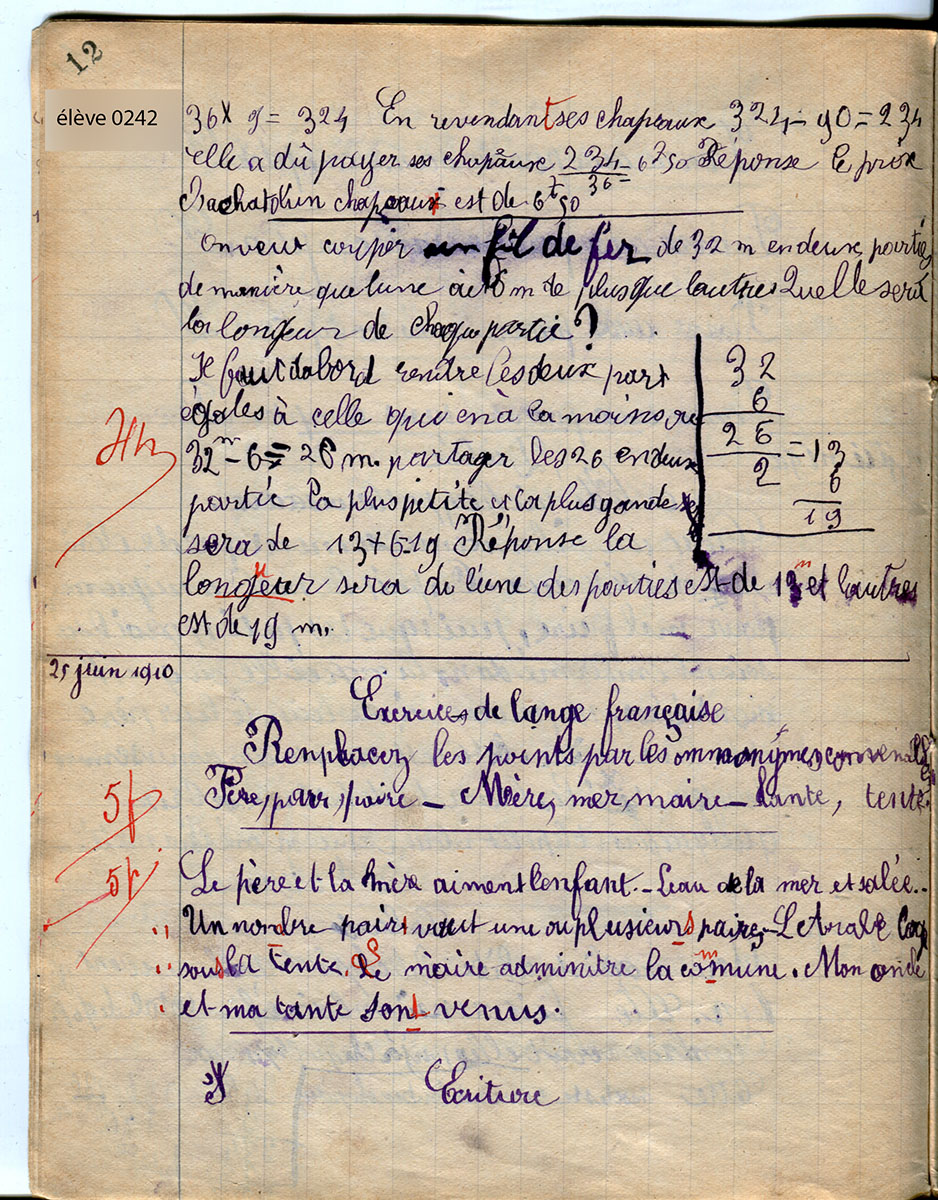 12
élève 0242
36 x 9 = 324 En revendant ses chapeaux 324 - 90 = 234
elle a dû payer ses chapeaux 234 / 36 = 6f50 Réponse le prix
d'achat d'un chapeau est de 6f50
On veut couper un fil de fer de 32 m en deux parties
de manière que l'une ai 6 m de plus que l'autres Quelle sera
la longeur de chaque partie ?
Il faut dabord rendre les deux part
égales à celle qui en à la moins
32m - 6 = 26 m. partager les 26 en deux
partie la plus petite et la plus gande
sera de 13 + 6 = 19 Réponse la
longueur sera de l'une des parties est de 13m et l'autres
est de 19 m.
32
6
26 = 13
2 6
19
25 juin 1910
Exercices de lange française
Renplacez les points par les ommonymes
Père, pair, paire – Mère, mer, maire – tante, tente
5f
5f
Le père et la mère aiment l'enfant. – L'eau de la mer et salée. –
Un nombre pair vaut une ou plusieurs paires – L'Arabe
sous la tente. Le maire adminitre la commune. Mon oncle
et ma tante sont venus.
Ecriture